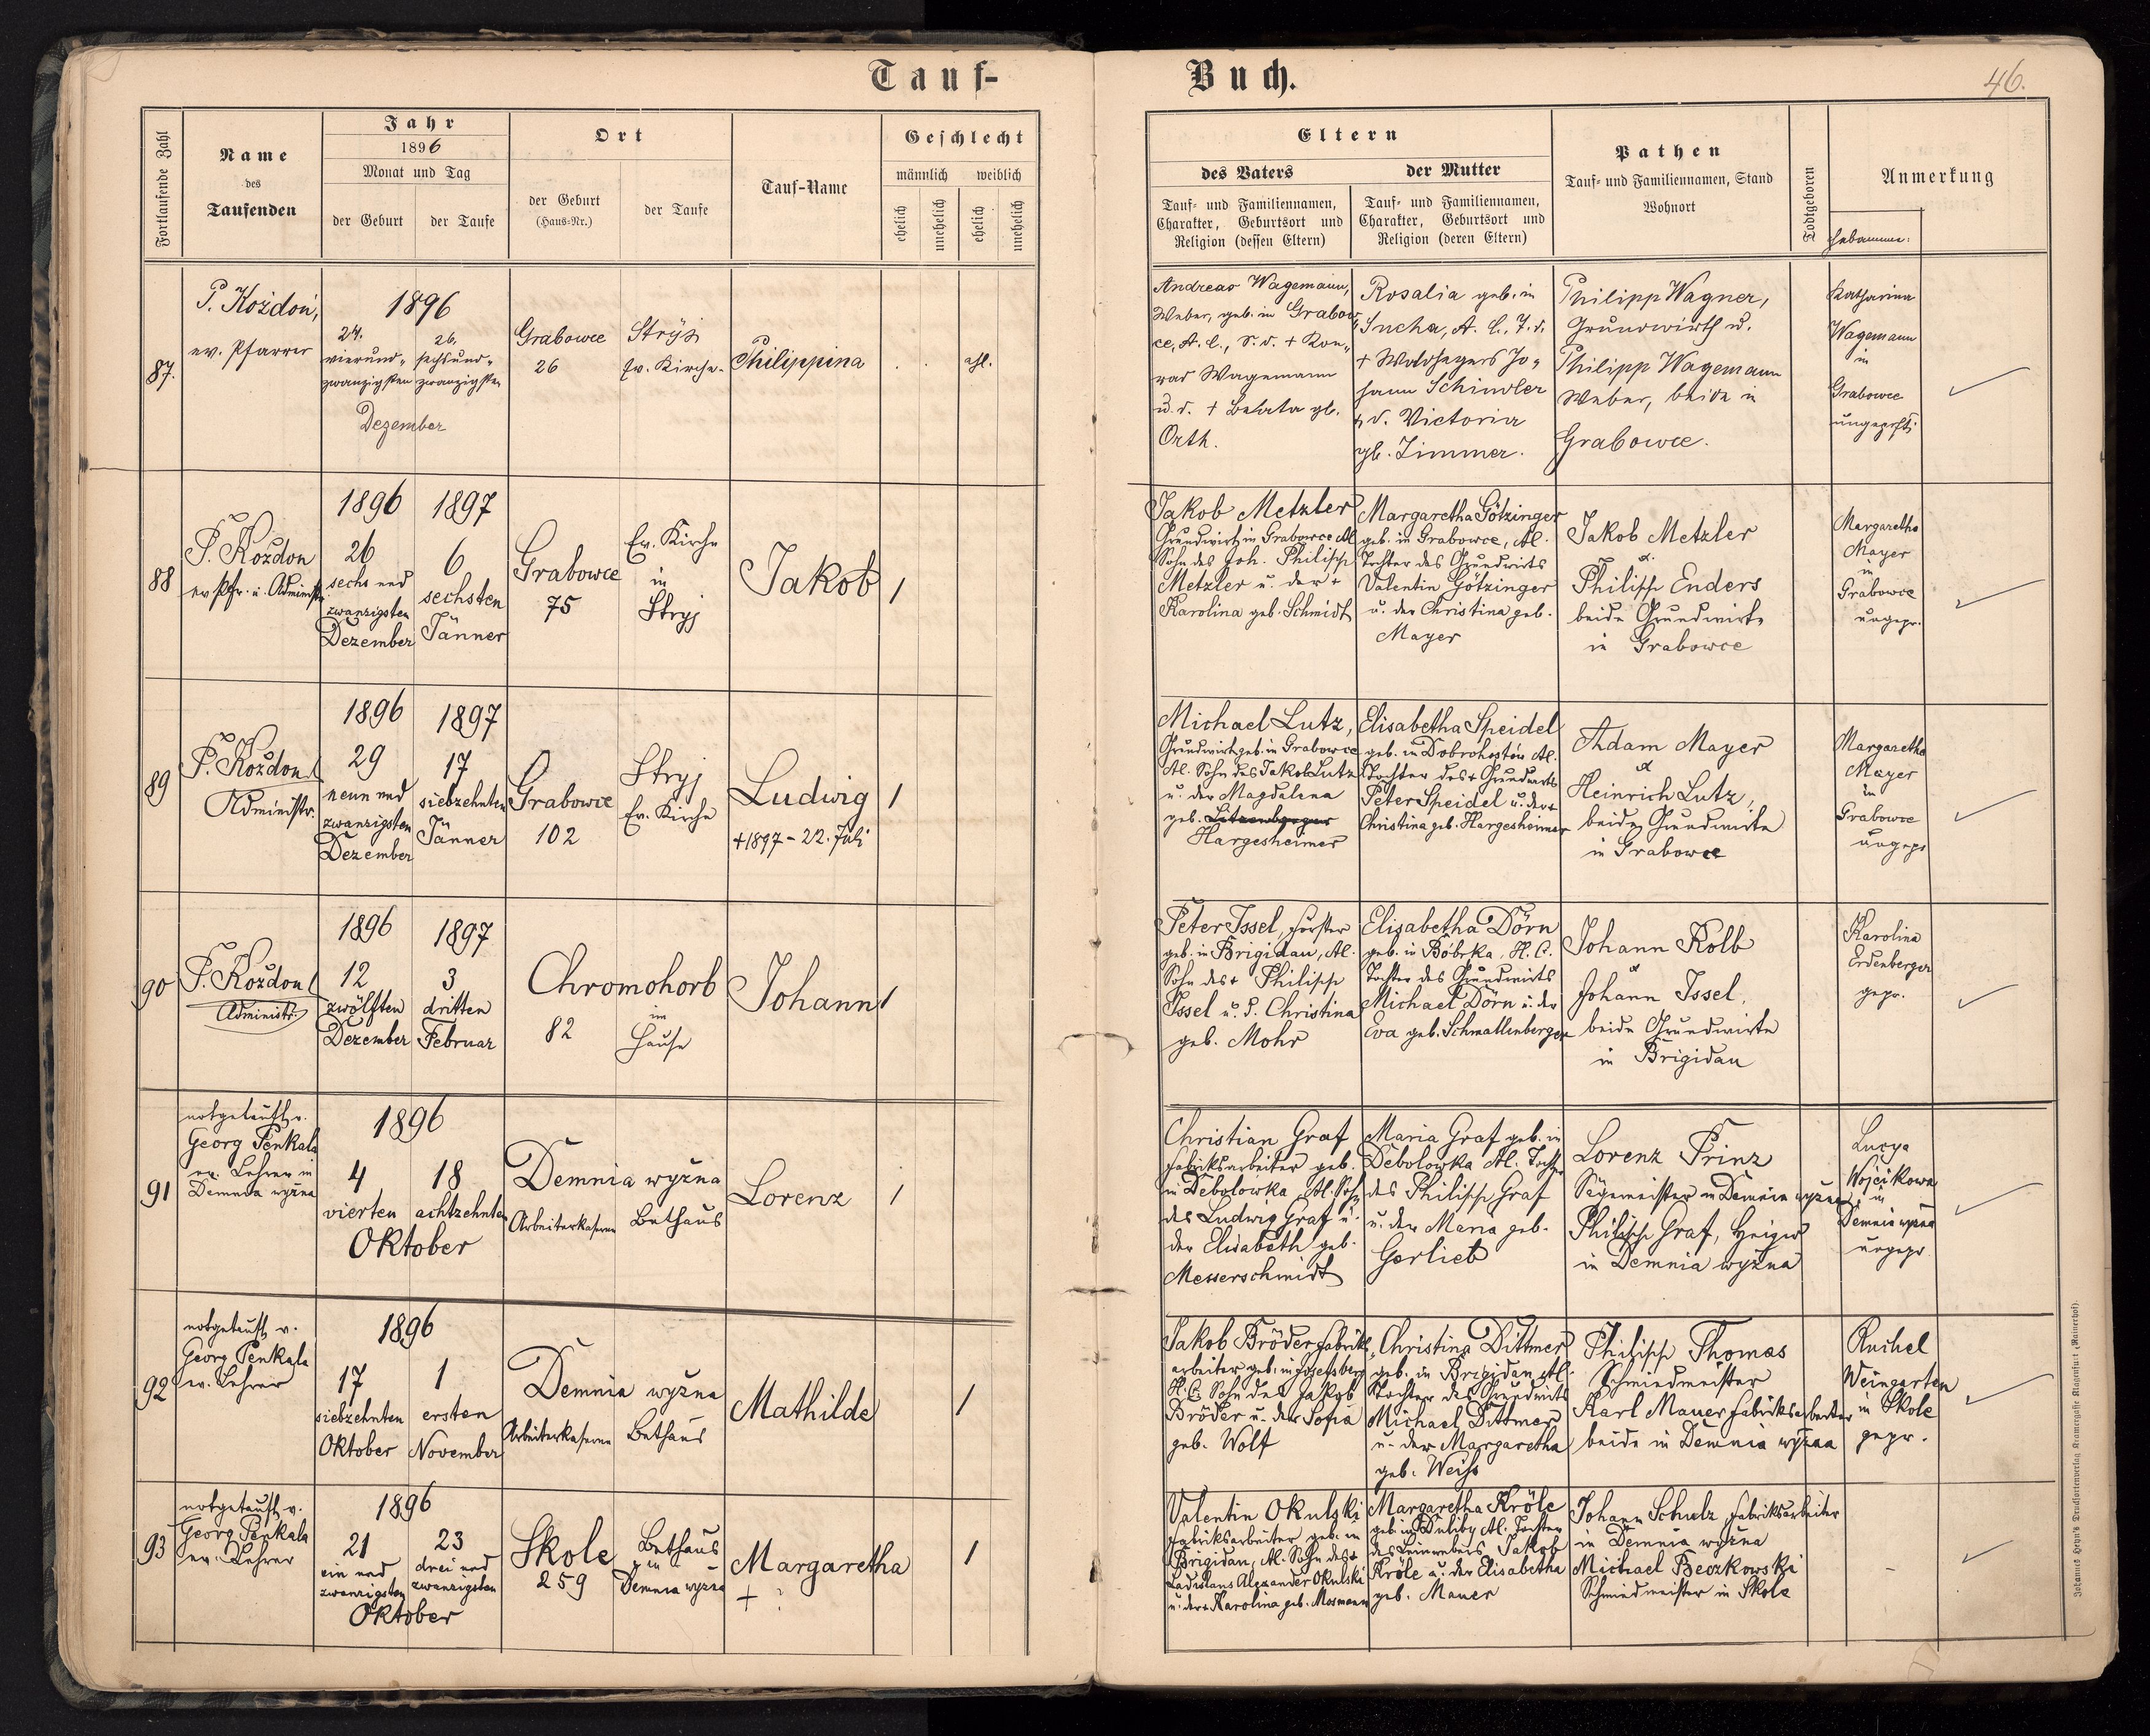 Tauf-
Buch.
46.
Fortlaufende Zahl
Name
des
Taufenden
Jahr
1896
Monat und Tag
der Geburt
der Taufe
Ort
der Geburt
(Haus-Nr.)
der Taufe
Tauf-Name
Geschlecht
männlich
weiblich
ehelich
unehelich
ehelich
unehelich
Eltern
des Vaters
der Mutter
Tauf- und Familiennamen,
Charakter, Geburtsort und
Religion (dessen Eltern)
Tauf- und Familiennamen,
Charakter, Geburtsort und
Religion (deren Eltern)
Pathen
Tauf- und Familiennamen, Stand
Wohnort
Todtgeboren
Anmerkung
Hebamme:
87.
P. Koždoń,
ev. Pfarrer
1896
24.
vierund-
zwanzigsten
26.
sechsund-
zwanzigsten
Dezember
Grabowce
26
Stryj
Ev. Kirche.
Philippina
ehl.
Andreas Wagemann,
Weber, geb. in Grabow-
ce, A. C., S. d. + Kon-
rad Wagemann
u. d. + Beata gb.
Orth.
Rosalia geb. in
Sucha, A. C., T. d.
+ Waldhegers Jo-
hann Schindler
u. d. Victoria
gb. Zimmer.
Philipp Wagner,
Grundwirth u.
Philipp Wagemann
Weber, beide in
Grabowce.
Katharina
Wagemann
in
Grabowce
ungeprft.
88
P. Koždon
ev. Pfr. u. Administr.
1896
26
sechs und
zwanzigsten
Dezember
1897
6
sechsten
Jänner
Grabowce
75
Ev. Kirche
in
Stryj
Jakob
1
Jakob Metzler
Grundwirt in Grabowce AC
Sohn des Joh. Philipp
Metzler u. der +
Karolina geb. Schmidt
Margaretha Götzinger
geb. in Grabowce, AC.
Tochter des Grundwirts
Valentin Götzinger
u. der Christina geb.
Mayer
Jakob Metzler
u.
Philipp Enders
beide Grundwirte
in Grabowce
Margaretha
Mayer
in
Grabowce
ungepr.
89
P. Koždon
Administr.
1896
29
neun und
zwanzigsten
Dezember
1897
17
siebzehnten
Jänner
Grabowce
102
Stryj
Ev. Kirche
Ludwig
+ 1897 - 22. Juli
1
Michael Lutz,
Grundwirt geb. in Grabowce
AC. Sohn des Jakob Lutz
u. der Magdalena
geb.
Hargesheimer
Elisabetha Speidel
geb. in Dobrohostów AC.
Tochter des + Grundwirts
Peter Speidel u. der +
Christina geb. Hargesheimer
Adam Mayer
u
Heinrich Lutz,
beide Grundwirte
in Grabowce
Margaretha
Mayer
in
Grabowce
ungepr
90
P. Koždon
Administr.
1896
12
zwölften
Dezember
1897
3
dritten
Februar
Chromohorb
82
im
Hause
Johann
1
Peter Issel, Förster
geb. in Brigidau, AC.
Sohn des + Philipp
Issel u. d. Christina
geb. Mohr
Elisabetha Dörn
geb. in Bóbrka, H. C.
Tochter des Grundwirts
Michael Dörn u. der
Eva geb. Schmallenberger
Johann Kolb
u
Johann Issel,
beide Grundwirte
in Brigidau
Karolina
Erdenberger
gepr.
91
notgetauft v.
Georg Penkala
ev. Lehrer in
Demnia wyżna
1896
4
vierten
18
achtzehnten
Oktober
Demnia wyżna
Arbeiterkaserne
Bethaus
Lorenz
1
Christian Graf
Fabriksarbeiter geb.
in Debolowka, AC. Sohn
des Ludwig Graf u.
der Elisabeth geb.
Messerschmidt
Maria Graf geb. in
Debolowka AC. Tochter
des Philipp Graf
u. der Maria geb.
Gerlieb
Lorenz Prinz
Sägemeister in Demnia wyżna
Philipp Graf, Heizer
in Demnia wyżna
Lucya
Wójcikowa
in
Demnia wyżna
ungepr.
92
notgetauft v.
Georg Penkala
ev. Lehrer
1896
17
siebzehnten
Oktober
1
ersten
November
Demnia wyżna
Arbeiterkaserne
Bethaus
Mathilde
1
Jakob Bröder Fabriks-
arbeiter geb. in Josefsberg
H.C. Sohn des Jakob
Bröder u. der Sofia
geb. Wolf
Christina Dittmer
geb. in Brigidau AC.
Tochter des Grundwirts
Michael Dittmer
u. der Margaretha
geb. Weiss
Philipp Thomas
Schmiedmeister
Karl Mauer Fabriksarbeiter
beide in Demnia wyżna
Ruchel
Weingarten
in Skole
gepr.
93
notgetauft v.
Georg Penkala
ev. Lehrer
1896
21
ein und
zwanzigsten
23
drei und
zwanzigsten
Oktober
Skole
259
Bethaus
in
Demnia wyżna
Margaretha
+ ?
1
Valentin Okulski
Fabriksarbeiter geb. in
Brigidau, AC. Sohn des +
Ladislaus Alexander Okulski
u. der + Karolina geb. Mosmann
Margaretha Kröle
geb. in Duliby AC. Tochter
des Leinwebers Jakob
Kröle u. der Elisabetha
geb. Mauer
Johann Schulz Fabriksarbeiter
in Demnia wyżna
Michael Beczkowski
Schmiedmeister in Skole
-
Johannes Heyn's Drucksortenverlag Kramergasse Klagenfurt (Rainerhof).